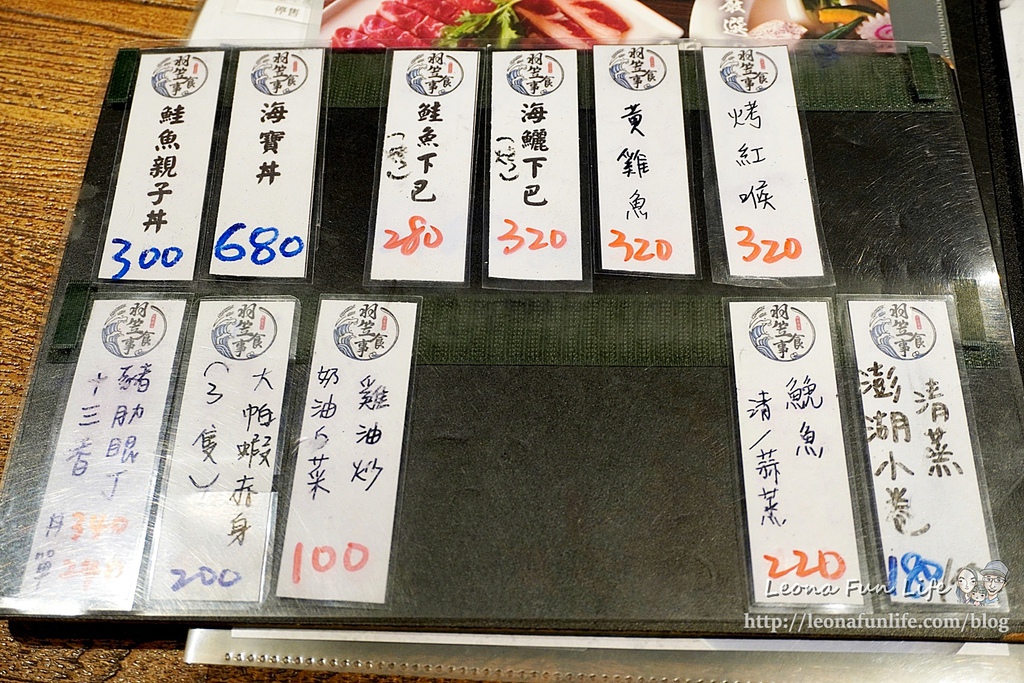 停售
嚴選
羽笠食事
鮭魚親子丼
300
羽笠食事
海寶丼
680
羽笠食事
鮭魚下巴
(烤)
280
羽笠食事
海鱺下巴
(烤)
320
羽笠食事
黃雞魚
320
羽笠食事
烤紅喉
320
羽笠食事
豬肋眼丁
十三香
丼 340
單
羽笠食事
大帕蝦赤身
(3隻)
200
羽笠食事
雞油炒
奶油白菜
100
羽笠食事
鮸魚
清/蒜蒸
220
羽笠食事
清蒸
澎湖小卷
180
Leona Fun Life
http://leonafunlife.com/blog